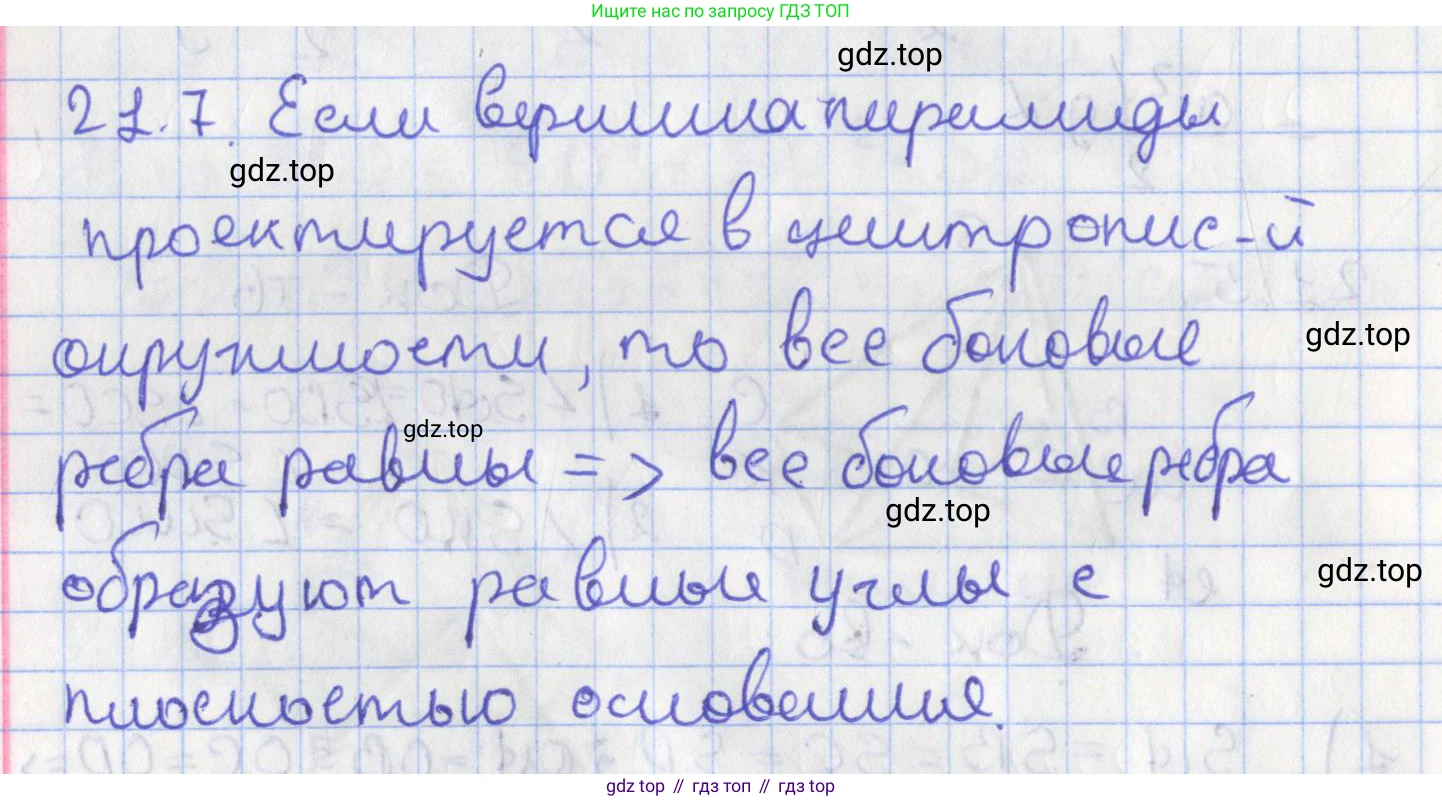 Ищите нас по запросу ГДЗ ТОП
gdz.top
21.7. Если вершина пирамиды
gdz.top
проектируется в центр опис-й
окружности, то все боковые
gdz.top
gdz.top
ребра равны => все боковые ребра
gdz.top
образуют равные углы с
gdz.top
плоскостью основания.
gdz top // гдз топ // gdz top